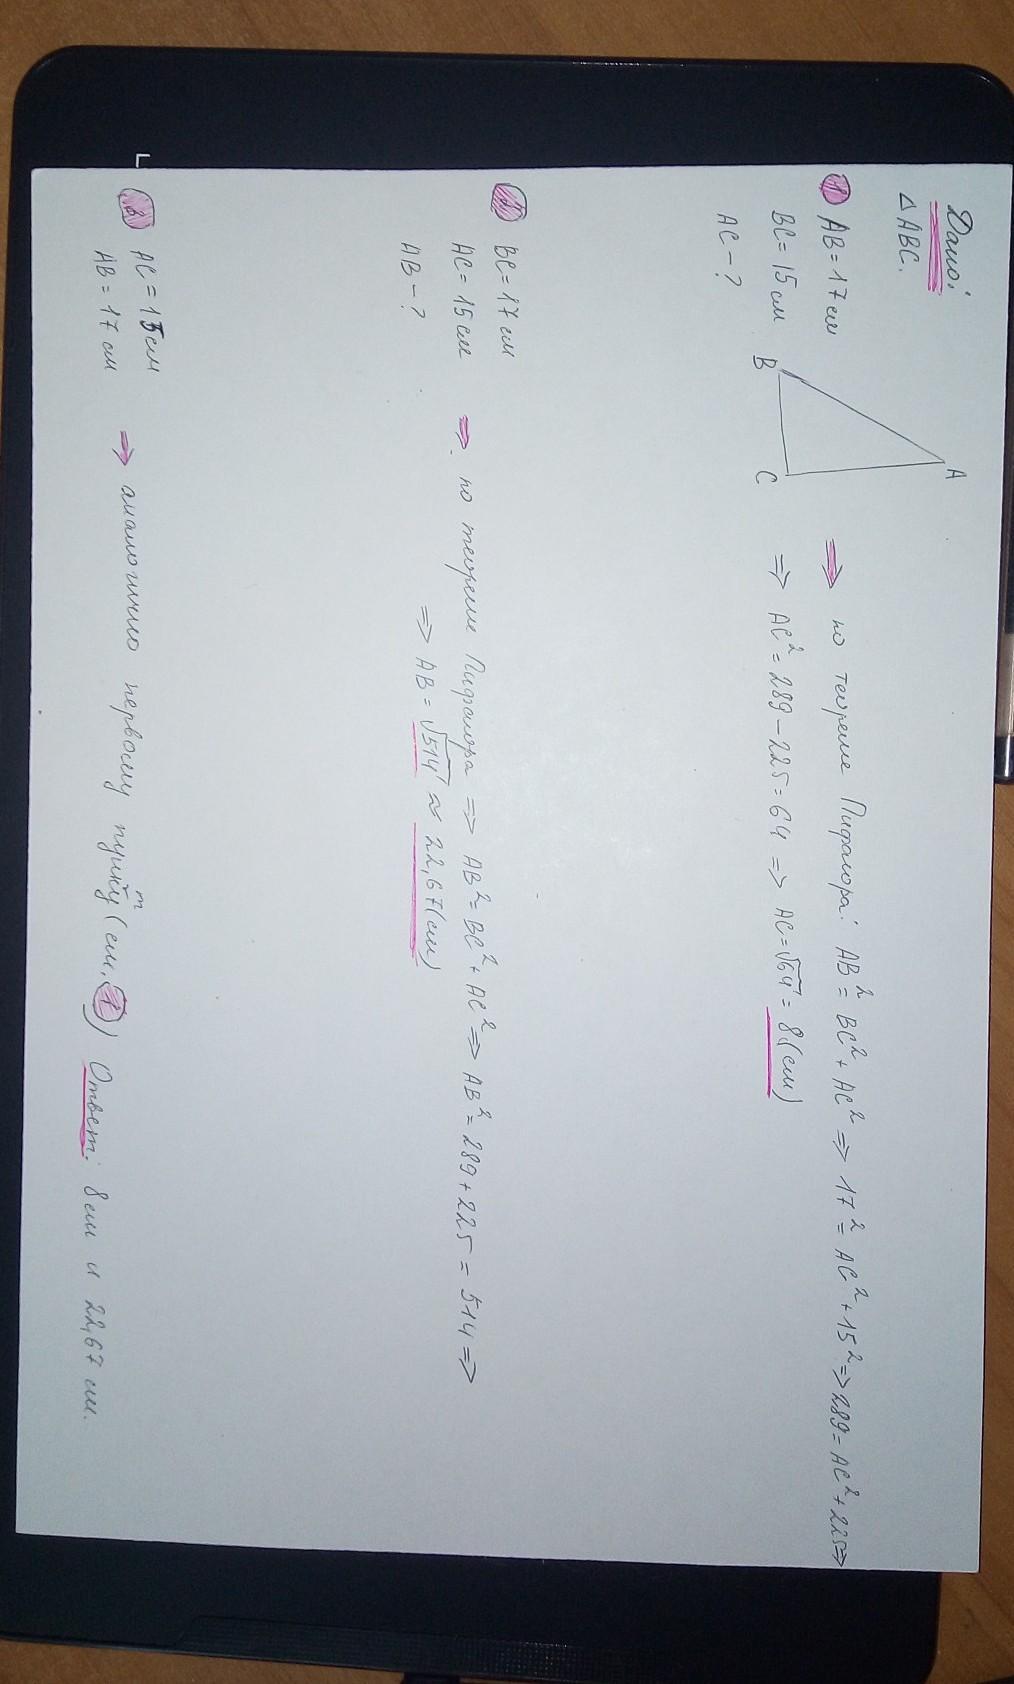 Дано:
△ABC.
1 AB = 17 см
BC = 15 см
AC - ?
A
B
C
=> по теореме Пифагора: AB² = BC² + AC² => 17² = AC² + 15² => 289 = AC² + 225 =>
=> AC² = 289 - 225 = 64 => AC = √64 = 8 (см)
2 BC = 17 см
AC = 15 см
AB - ?
=> по теореме Пифагора => AB² = BC² + AC² => AB² = 289 + 225 = 514 =>
=> AB = √514 ≈ 22,67 (см)
3 AC = 15 см
AB = 17 см
=> аналогично первому пункту (см. 1) Ответ: 8 см и 22,67 см.